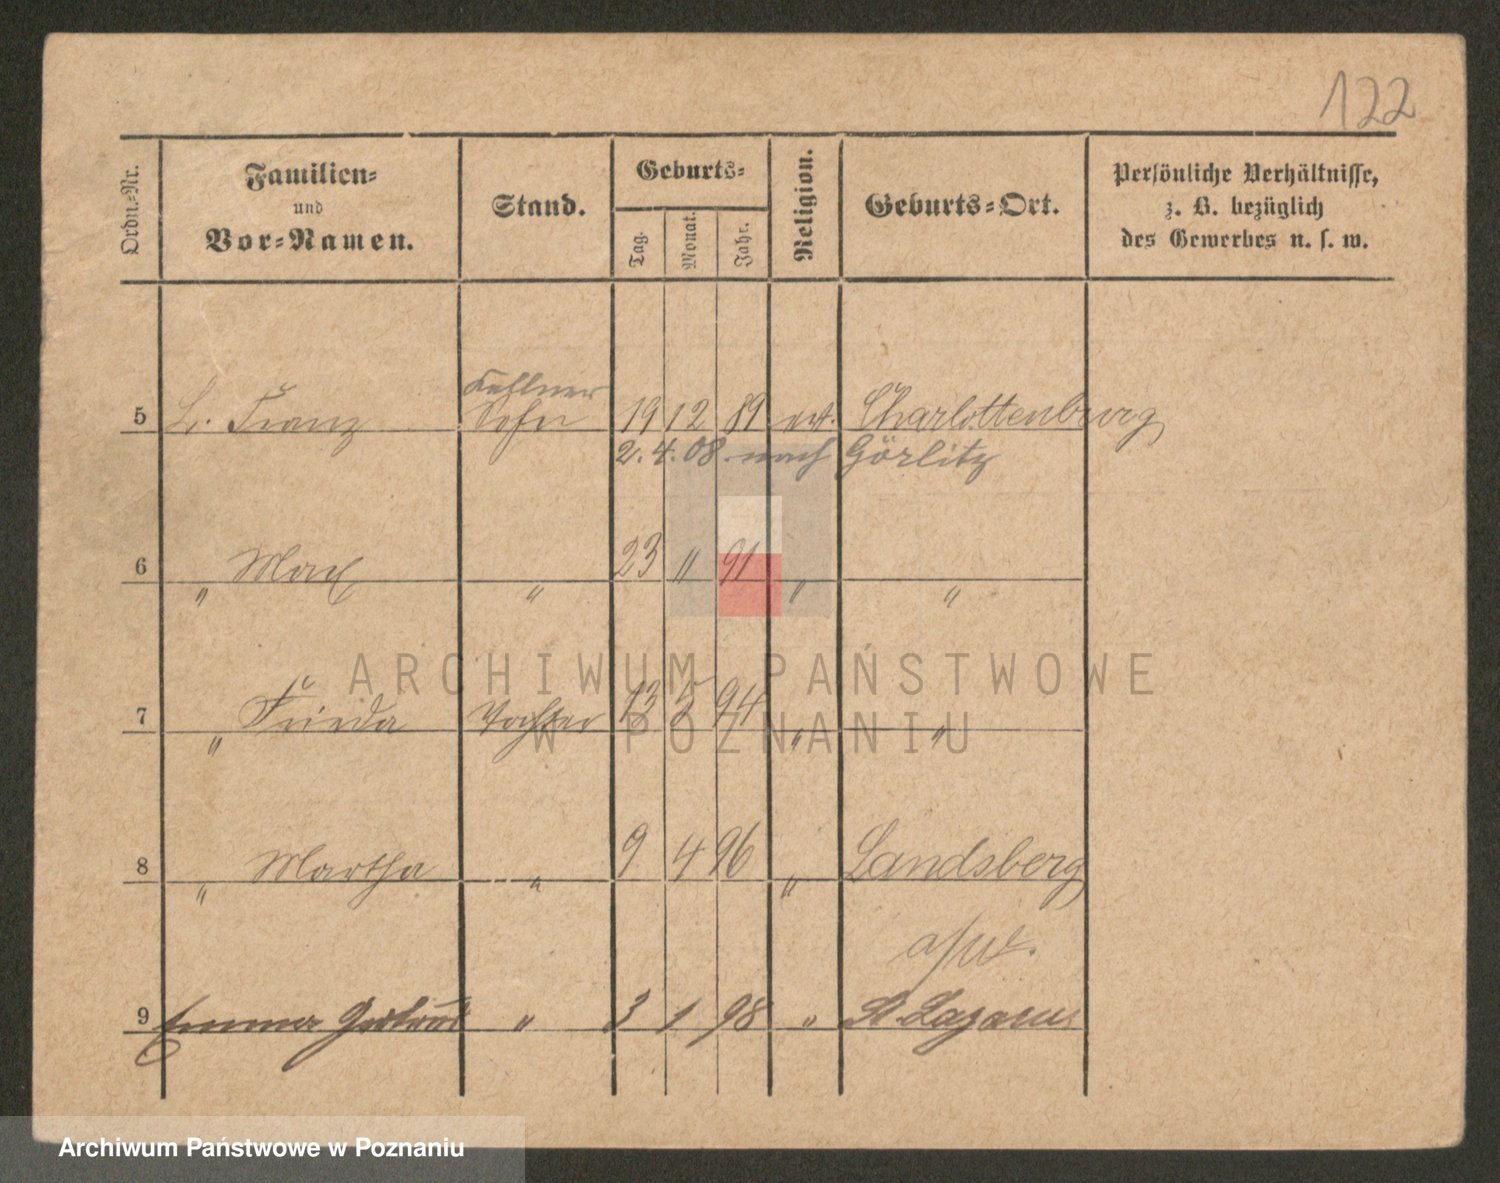 122
Ordn.-Nr.
Familien-
und
Vor-Namen.
Stand.
Geburts-
Tag.
Monat.
Jahr.
Religion.
Geburts-Ort.
Persönliche Verhältnisse,
z. B. bezüglich
des Gewerbes u. s. w.
Kellner
5 L. Franz Sohn 19 12 89 ev. Charlottenburg
2. 4. 08. nach Görlitz
6 " Max " 23 11 91 " "
ARCHIWUM PAŃSTWOWE
7 " Frieda Tochter 13 5 94 " "
W POZNANIU
8 " Martha " 9 4 96 " Landsberg
a/W.
9 Emma Gertrud " 3 1 98 " St. Lazarus
Archiwum Państwowe w Poznaniu